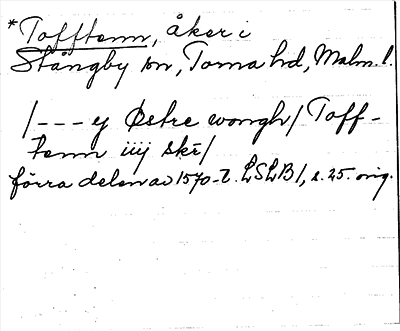 *Tofftenn, åker i
Stångby sn, Torna hd, Malm. l.
/--- ey Østre wongh/ Toff-
tenn iiij skr/
förra delen av 1570-t. LSLB 1, s. 25. orig.